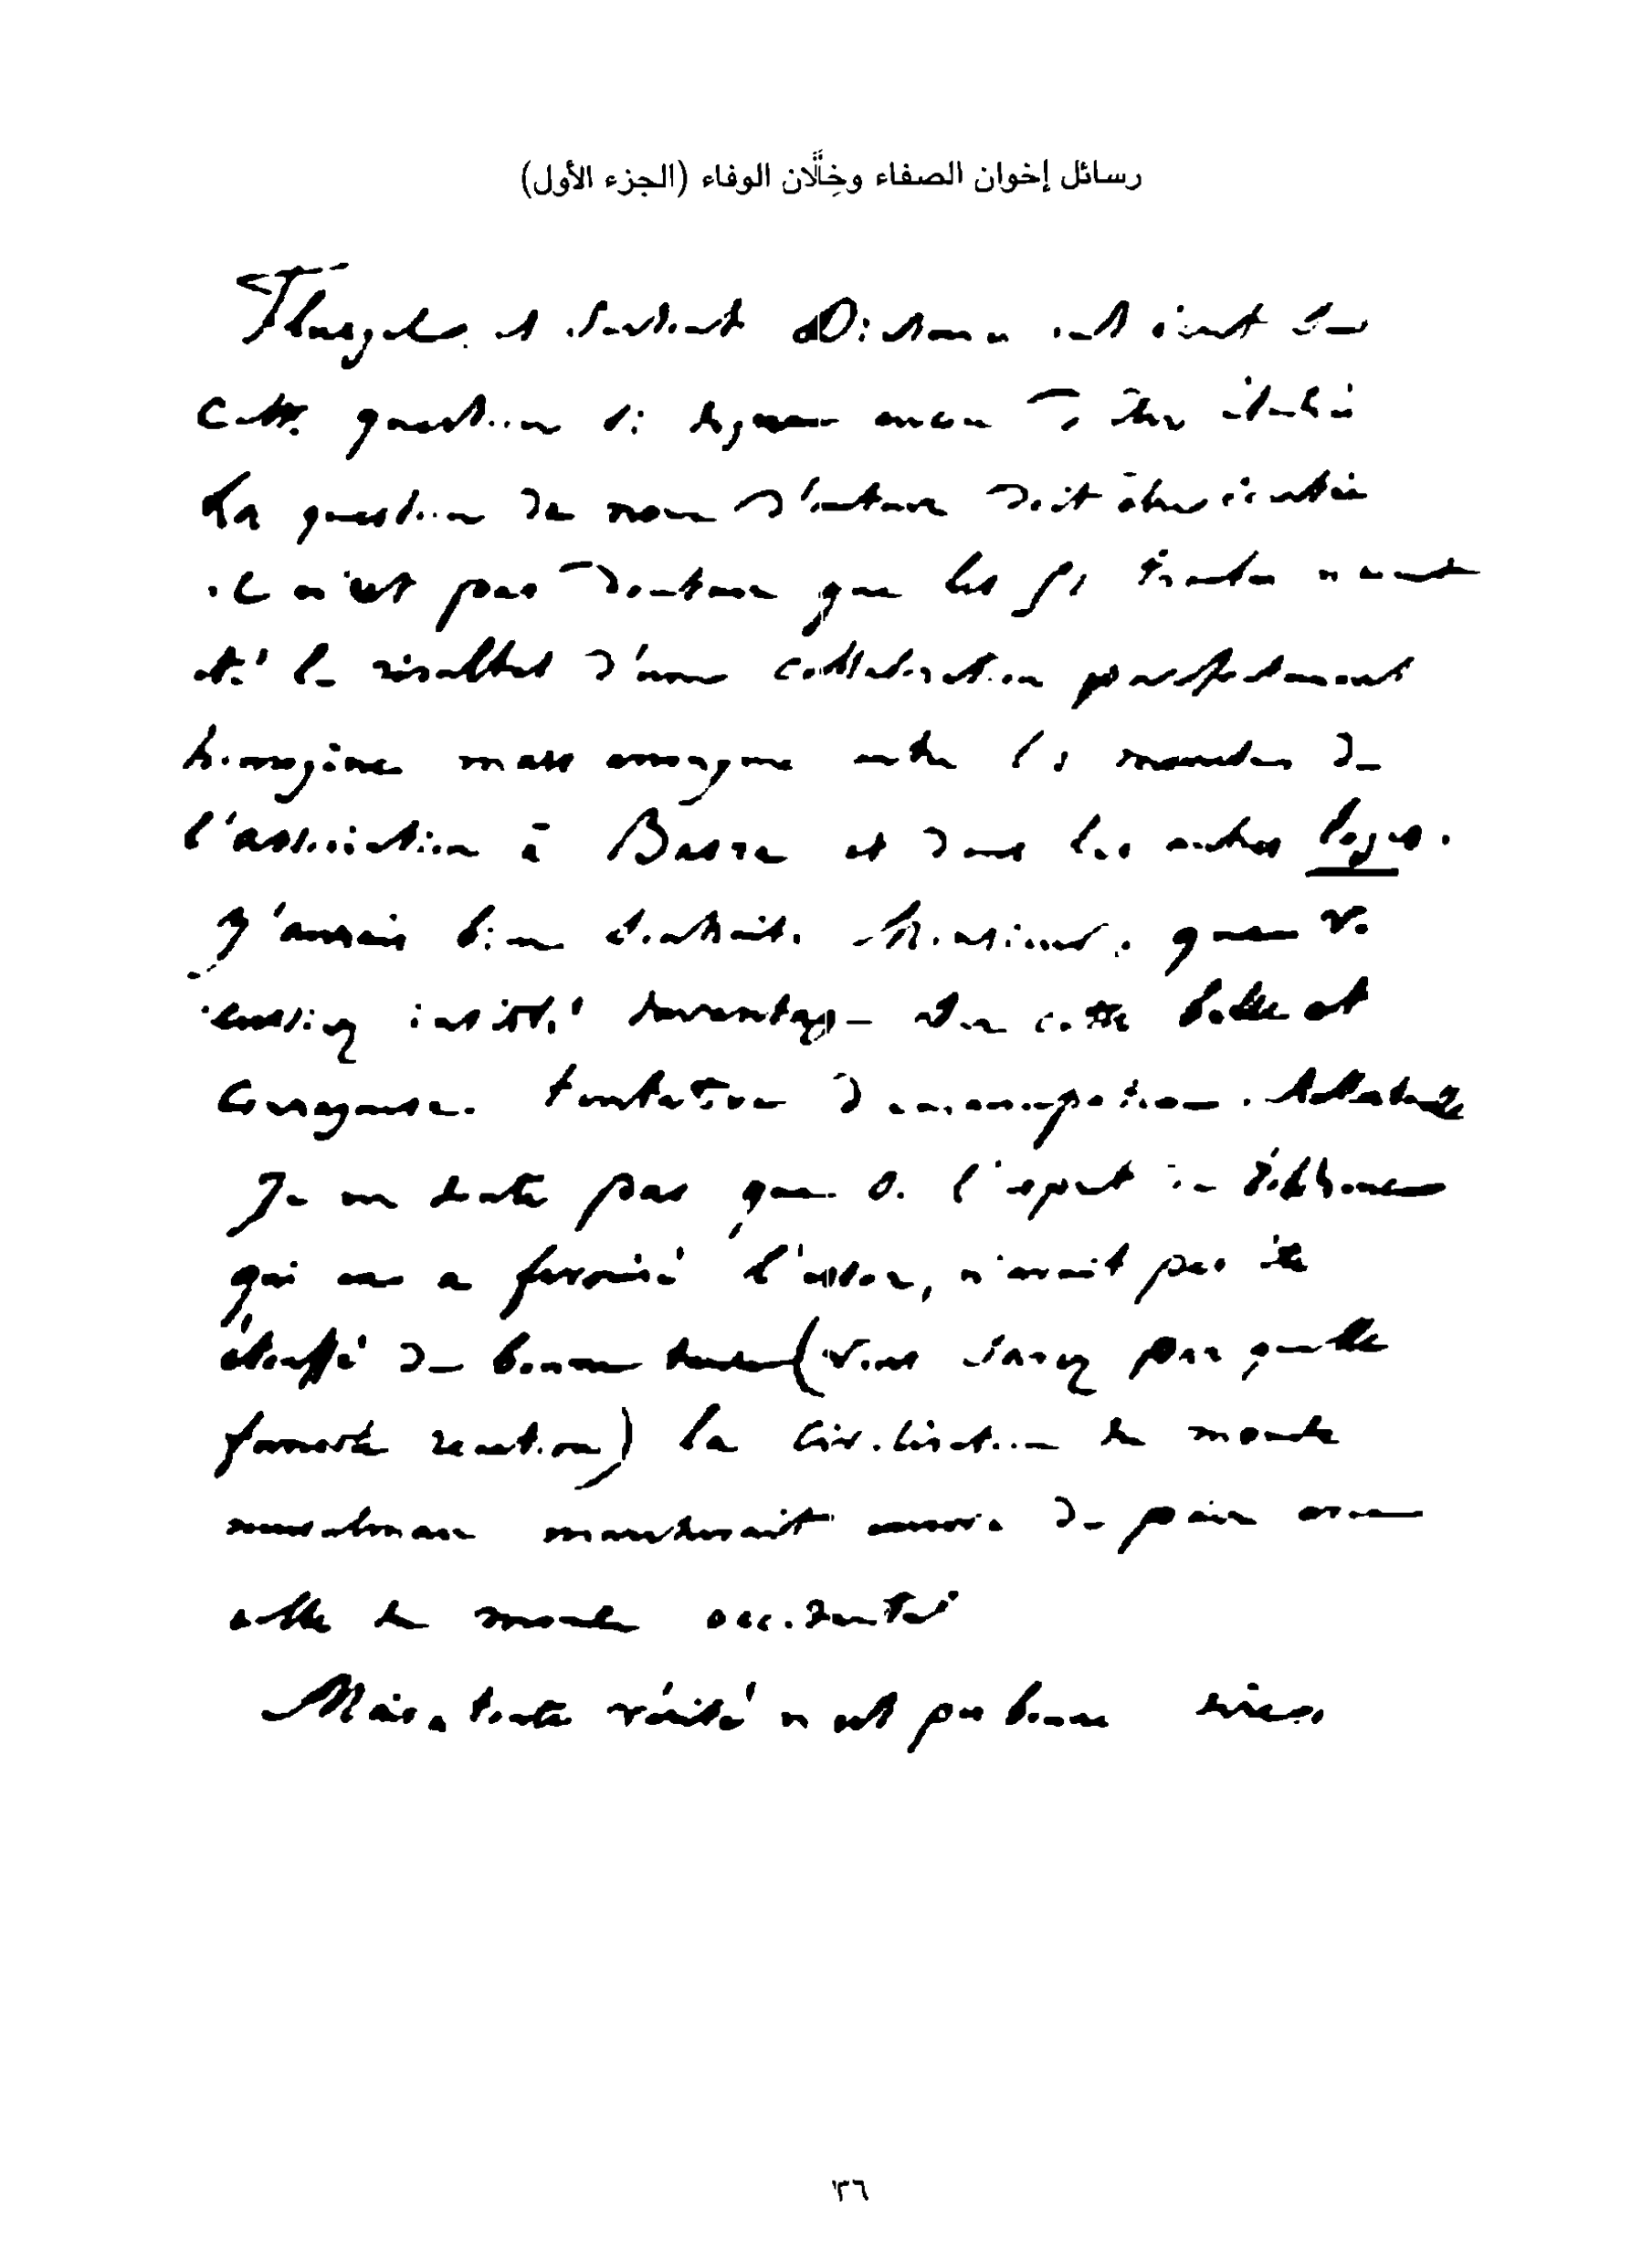 رسائل إخوان الصفاء وخِلَّان الوفاء (الجزء الأول)
Fluegel et surtout Dieterici ont écrit
Cette question
La question de nom d'auteur doit être écartée
il n'est pas douteux que les 51 traités n'aient
été le résultat d'une collaboration parfaitement
homogène mais anonyme entre les membres de
l'association à Basra et dans les autres loges.
J'aurais bien souhaité, Monsieur, que v.
eussiez insisté davantage sur cette belle et
Courageuse tentative d'émancipation intellectuelle
Je ne doute pas que si l'esprit
qui en a favorisé l'essor, n'avait pas été
étouffé de bonne heure (vous savez par quelle
funeste réaction) la Civilisation du monde
musulman marcherait encore de pair avec
celle du monde occidental
Mais toute vérité n'est pas bonne à dire.
٣٦